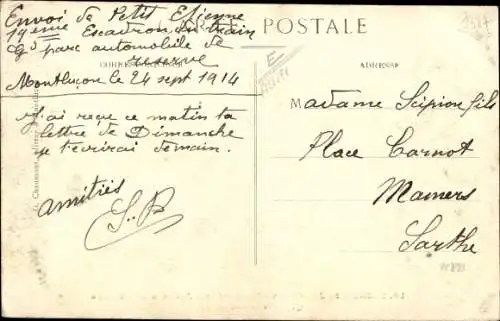 Envoi de Petit Etienne
19eme Escadron du train
Gd parc automobile de
reserve
Montluçon le 24 sept 1914
J'ai reçu ce matin ta
lettre de Dimanche
je t'écrirai demain.
amitiés
S.P
POSTALE
CORRESPONDANCE
ADRESSE
Madame Scipion fils
Place Carnot
Mamers
Sarthe